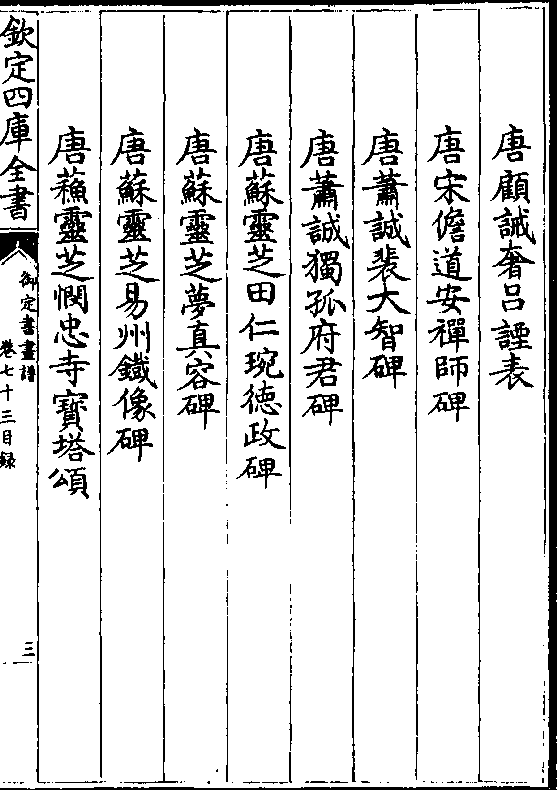 唐顧誡奢呂諲表
唐宋儋道安禪師碑
唐蕭誠裴大智碑
唐蕭誠獨孤府君碑
唐蘇靈芝田仁琬德政碑
唐蘇靈芝夢真容碑
唐蘇靈芝易州鐵像碑
唐蘓靈芝憫忠寺寶塔頌
欽定四庫全書
御定書畫譜
卷七十三目録
三